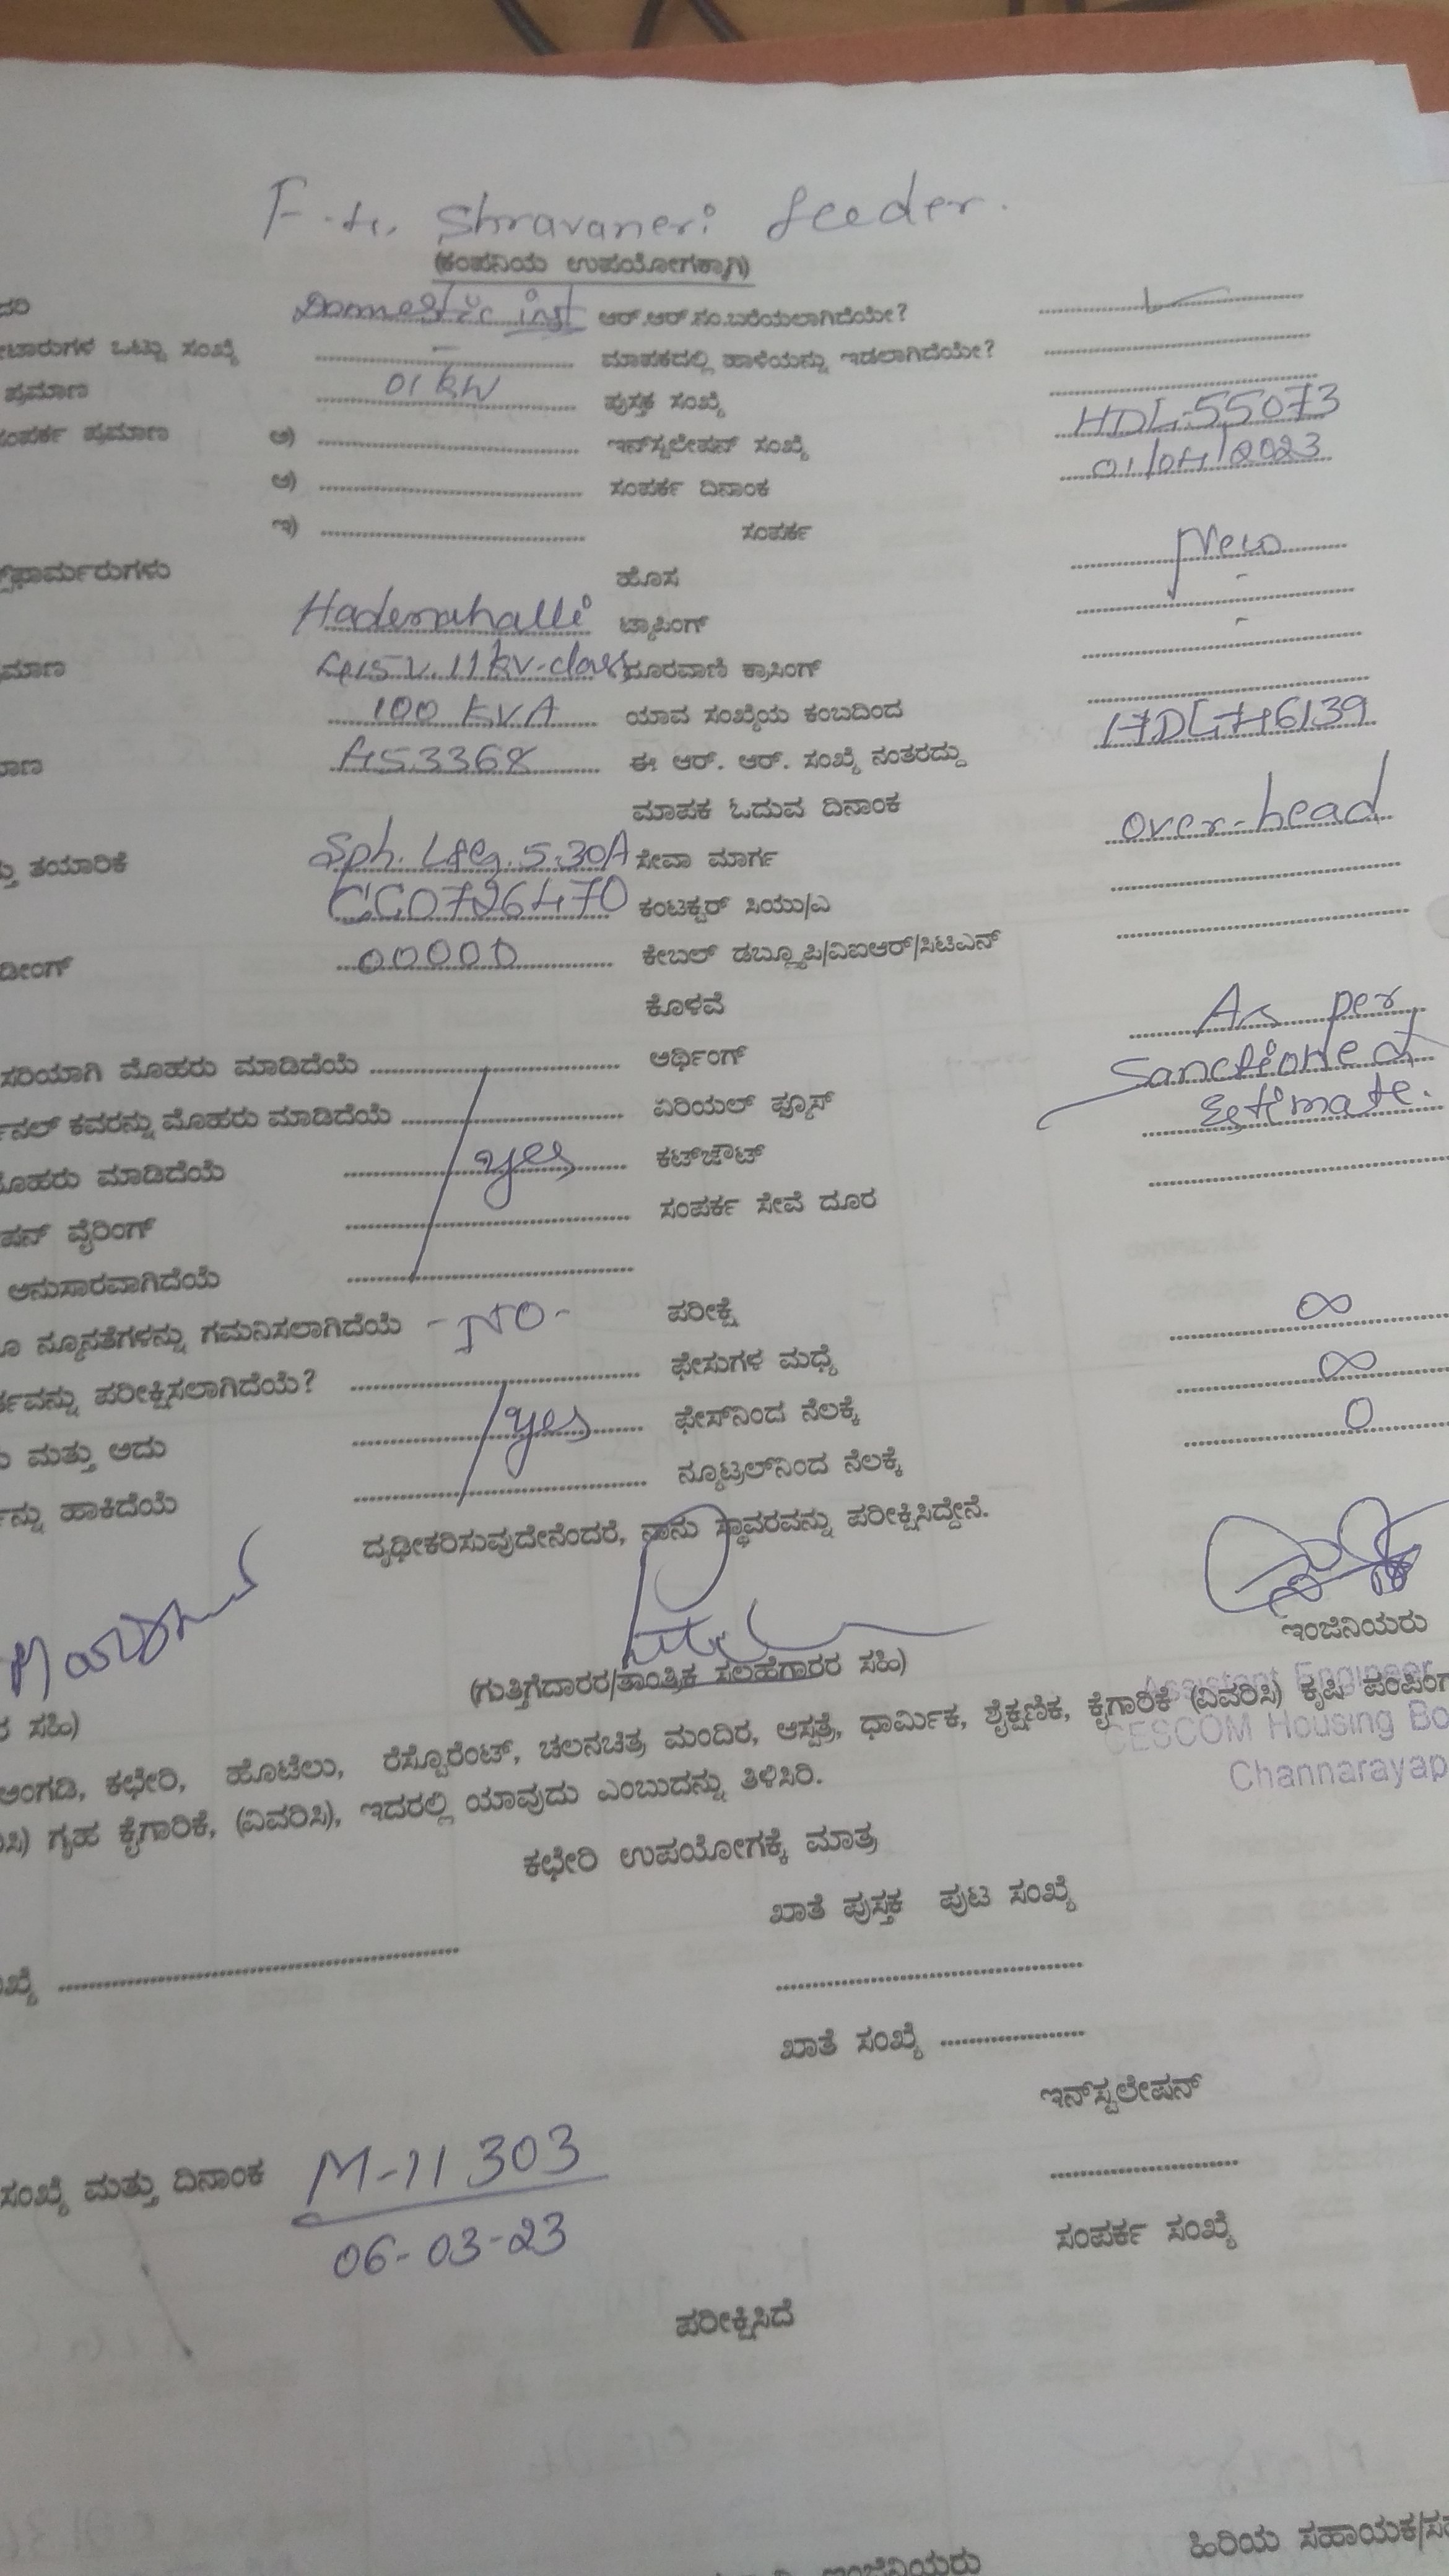 F-4. Shravaneri feeder.
(ಕಂಪನಿಯ ಉಪಯೋಗಕ್ಕಾಗಿ)
Domestic inst ಆರ್.ಆರ್.ನಂ.ಬರೆಯಲಾಗಿದೆಯೇ?
ಒಟ್ಟು ಸಂಖ್ಯೆ - ಮಾಪಕದಲ್ಲಿ ಹಾಳೆಯನ್ನು ಇಡಲಾಗಿದೆಯೇ?
ಪ್ರಮಾಣ 01 KW ಪುಸ್ತಕ ಸಂಖ್ಯೆ
ಸಂಪರ್ಕ ಪ್ರಮಾಣ ಅ) ಇನ್‌ಸ್ಟಲೇಷನ್ ಸಂಖ್ಯೆ HDL-55073
ಆ) ಸಂಪರ್ಕ ದಿನಾಂಕ 01/04/2023
ಇ) ಸಂಪರ್ಕ
ಹೊಸ New
Hadenahalli ಟ್ಯಾಪಿಂಗ್ -
415 V. 11 KV-class ದೂರವಾಣಿ ಕ್ರಾಸಿಂಗ್ -
100 KVA ಯಾವ ಸಂಖ್ಯೆಯ ಕಂಬದಿಂದ
A53368 ಈ ಆರ್. ಆರ್. ಸಂಖ್ಯೆ ನಂತರದ್ದು HDL-46139
ಮಾಪಕ ಓದುವ ದಿನಾಂಕ
ತಯಾರಿಕೆ Sph. L&G. 5-30A ಸೇವಾ ಮಾರ್ಗ over-head
CC0726470 ಕಂಟಕ್ಟರ್ ಸಿಯು/ಎ
00000 ಕೇಬಲ್ ಡಬ್ಲ್ಯೂಪಿ/ವಿಐಆರ್/ಸಿಟಿಎನ್
ಕೊಳವೆ
ಸರಿಯಾಗಿ ಮೊಹರು ಮಾಡಿದೆಯೆ ಅರ್ಥಿಂಗ್ As per
ಕವರನ್ನು ಮೊಹರು ಮಾಡಿದೆಯೆ ಏರಿಯಲ್ ಫ್ಯೂಸ್ Sanctioned
ಮೊಹರು ಮಾಡಿದೆಯೆ yes ಕಟ್‌ಔಟ್ Estimate.
ವೈರಿಂಗ್ ಸಂಪರ್ಕ ಸೇವೆ ದೂರ
ಅನುಸಾರವಾಗಿದೆಯೆ
ನ್ಯೂನತೆಗಳನ್ನು ಗಮನಿಸಲಾಗಿದೆಯೆ -NO- ಪರೀಕ್ಷೆ
ಪರೀಕ್ಷಿಸಲಾಗಿದೆಯೆ? ಫೇಸುಗಳ ಮಧ್ಯೆ ∞
ಮತ್ತು ಅದು yes ಫೇಸ್‌ನಿಂದ ನೆಲಕ್ಕೆ ∞
ಹಾಕಿದೆಯೆ ನ್ಯೂಟ್ರಲ್‌ನಿಂದ ನೆಲಕ್ಕೆ 0
ದೃಢೀಕರಿಸುವುದೇನೆಂದರೆ, ನಾನು ಸ್ಥಾವರವನ್ನು ಪರೀಕ್ಷಿಸಿದ್ದೇನೆ.
ಇಂಜಿನಿಯರು
ಸಹಿ) (ಗುತ್ತಿಗೆದಾರರ/ತಾಂತ್ರಿಕ ಸಲಹೆಗಾರರ ಸಹಿ)
Assistant Engineer
CESCOM Housing Bo
Channarayap
ಅಂಗಡಿ, ಕಛೇರಿ, ಹೊಟೆಲು, ರೆಸ್ಟೊರೆಂಟ್, ಚಲನಚಿತ್ರ ಮಂದಿರ, ಆಸ್ಪತ್ರೆ, ಧಾರ್ಮಿಕ, ಶೈಕ್ಷಣಿಕ, ಕೈಗಾರಿಕೆ (ವಿವರಿಸಿ) ಕೃಷಿ ಪಂಪಿಂಗ್
ಗೃಹ ಕೈಗಾರಿಕೆ, (ವಿವರಿಸಿ), ಇದರಲ್ಲಿ ಯಾವುದು ಎಂಬುದನ್ನು ತಿಳಿಸಿರಿ.
ಕಛೇರಿ ಉಪಯೋಗಕ್ಕೆ ಮಾತ್ರ
ಖಾತೆ ಪುಸ್ತಕ ಪುಟ ಸಂಖ್ಯೆ
ಖಾತೆ ಸಂಖ್ಯೆ
ಇನ್‌ಸ್ಟಲೇಷನ್
ಸಂಖ್ಯೆ ಮತ್ತು ದಿನಾಂಕ M-11303
06-03-23
ಸಂಪರ್ಕ ಸಂಖ್ಯೆ
ಪರೀಕ್ಷಿಸಿದೆ
ಹಿರಿಯ ಸಹಾಯಕ/ಸಹ
ಇಂಜಿನಿಯರು